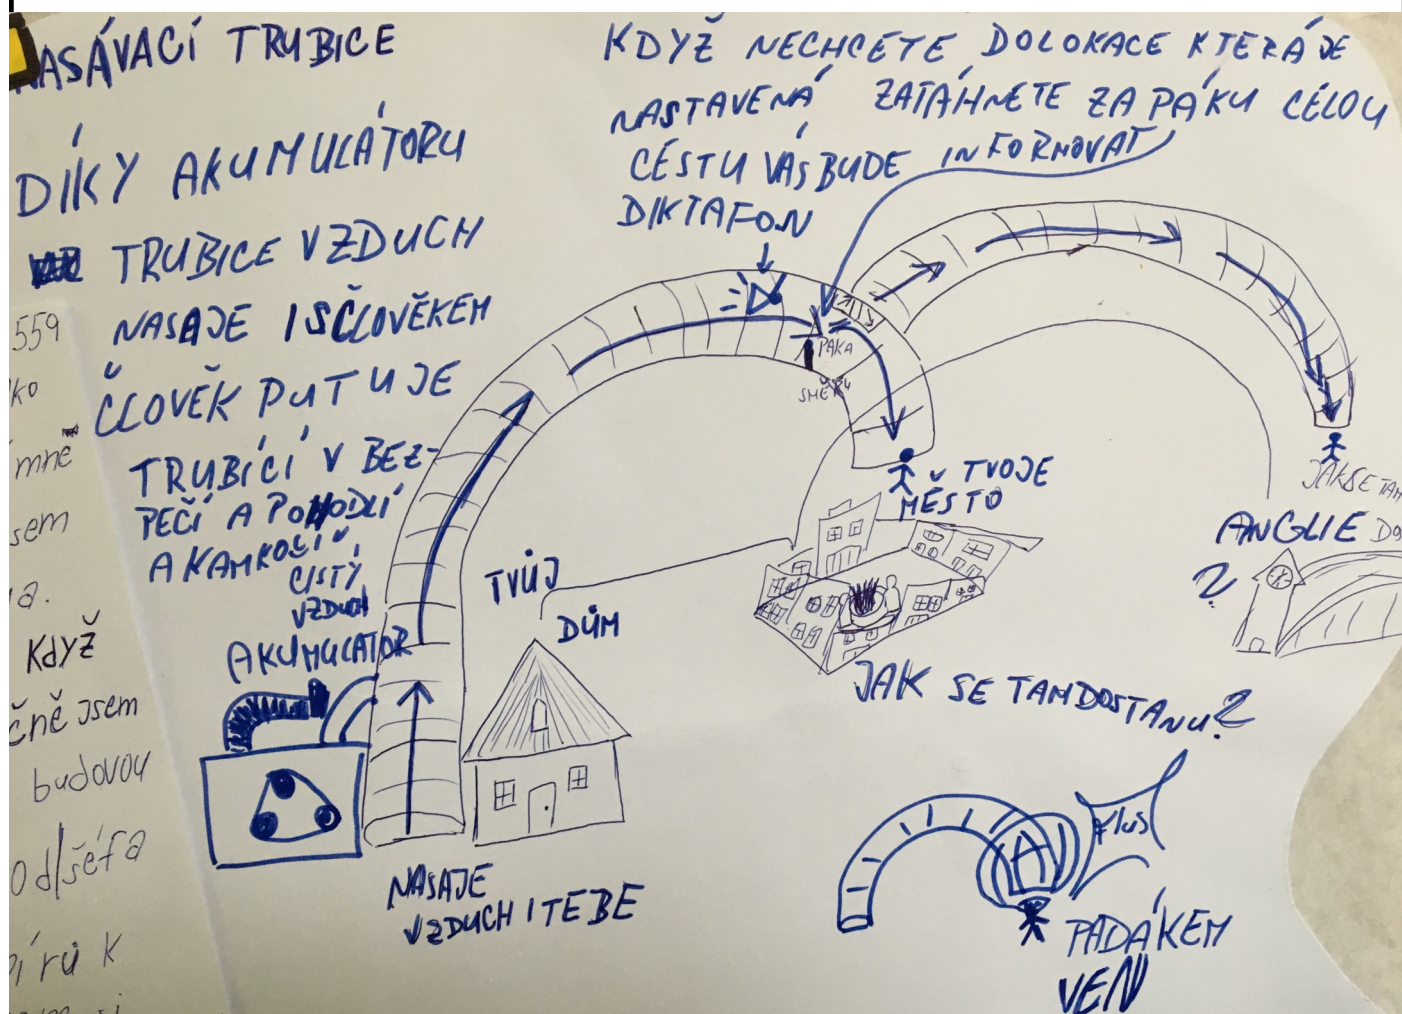 NASÁVACÍ TRUBICE
DÍKY AKUMULÁTORU
TRUBICE VZDUCH
NASAJE I SČLOVĚKEM
ČLOVĚK PUTUJE
TRUBÍCÍ V BEZ-
PEČÍ A POHODLÍ
A KAMKOLIV
ČISTÝ
VZDUCH
AKUMULATOR
KDYŽ NECHCETE DOLOKACE KTERÁ JE
NASTAVENÁ ZATÁHNETE ZA PÁKU CÉLOU
CÉSTU VÁS BUDE INFORMOVAT
DIKTAFON
PAKA
SMĚRU
V TVOJE
MĚSTO
TVŮJ
DŮM
JAK SE TAM
ANGLIE DO
?
JAK SE TAM DOSTANU?
NASAJE
VZDUCH I TEBE
PADÁKEM
VEN
559
ko
mně
sem
a.
Když
čně jsem
budovou
od šéfa
íru k